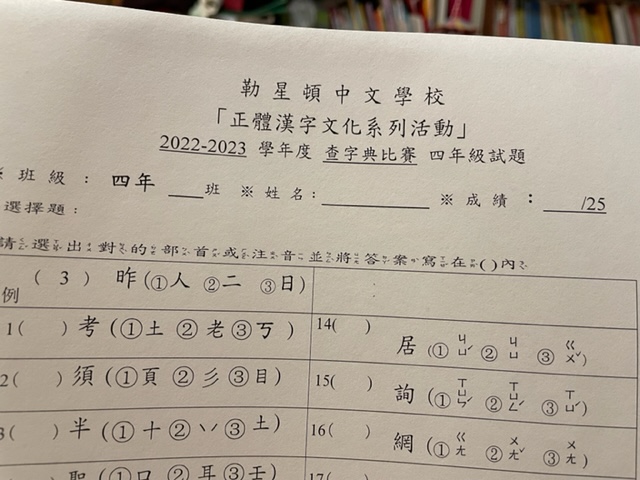 勒星頓中文學校
「正體漢字文化系列活動」
2022-2023 學年度 查字典比賽 四年級試題
※ 班級： 四年 ___班 ※ 姓名：__________ ※ 成績：_____/25
選擇題：
請選出對的部首或注音並將答案寫在( )內
例 ( 3 ) 昨 (①人 ②二 ③日)
1( ) 考 (①土 ②老 ③丂 )
14( ) 居 (① ㄐㄩˊ ② ㄐㄩ ③ ㄍㄨˇ)
2( ) 須 (①頁 ②彡 ③目 )
15( ) 詢 (① ㄒㄩㄣˊ ② ㄒㄩㄥˊ ③ ㄒㄩˊ)
3( ) 半 (①十 ②丷 ③土 )
16( ) 網 (① ㄍㄤ ② ㄨㄤˇ ③ ㄨㄤ)
聖 (①口 ②耳 ③壬 )
17(